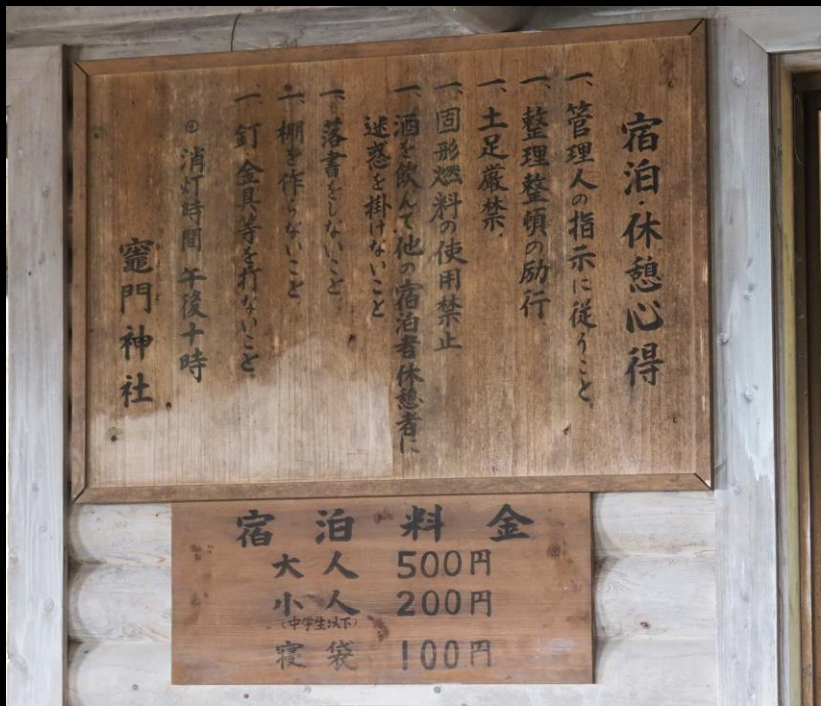 宿泊・休憩心得
一、管理人の指示に従うこと
一、整理整頓の励行
一、土足厳禁
一、固形燃料の使用禁止
一、酒を飲んで他の宿泊者休憩者に
迷惑を掛けないこと
一、落書をしないこと
一、棚を作らないこと
一、釘、金具等を打ないこと
◎消灯時間 午後十時
竈門神社
宿泊料金
大人 500円
小人 200円
(中学生以下)
寝袋 100円